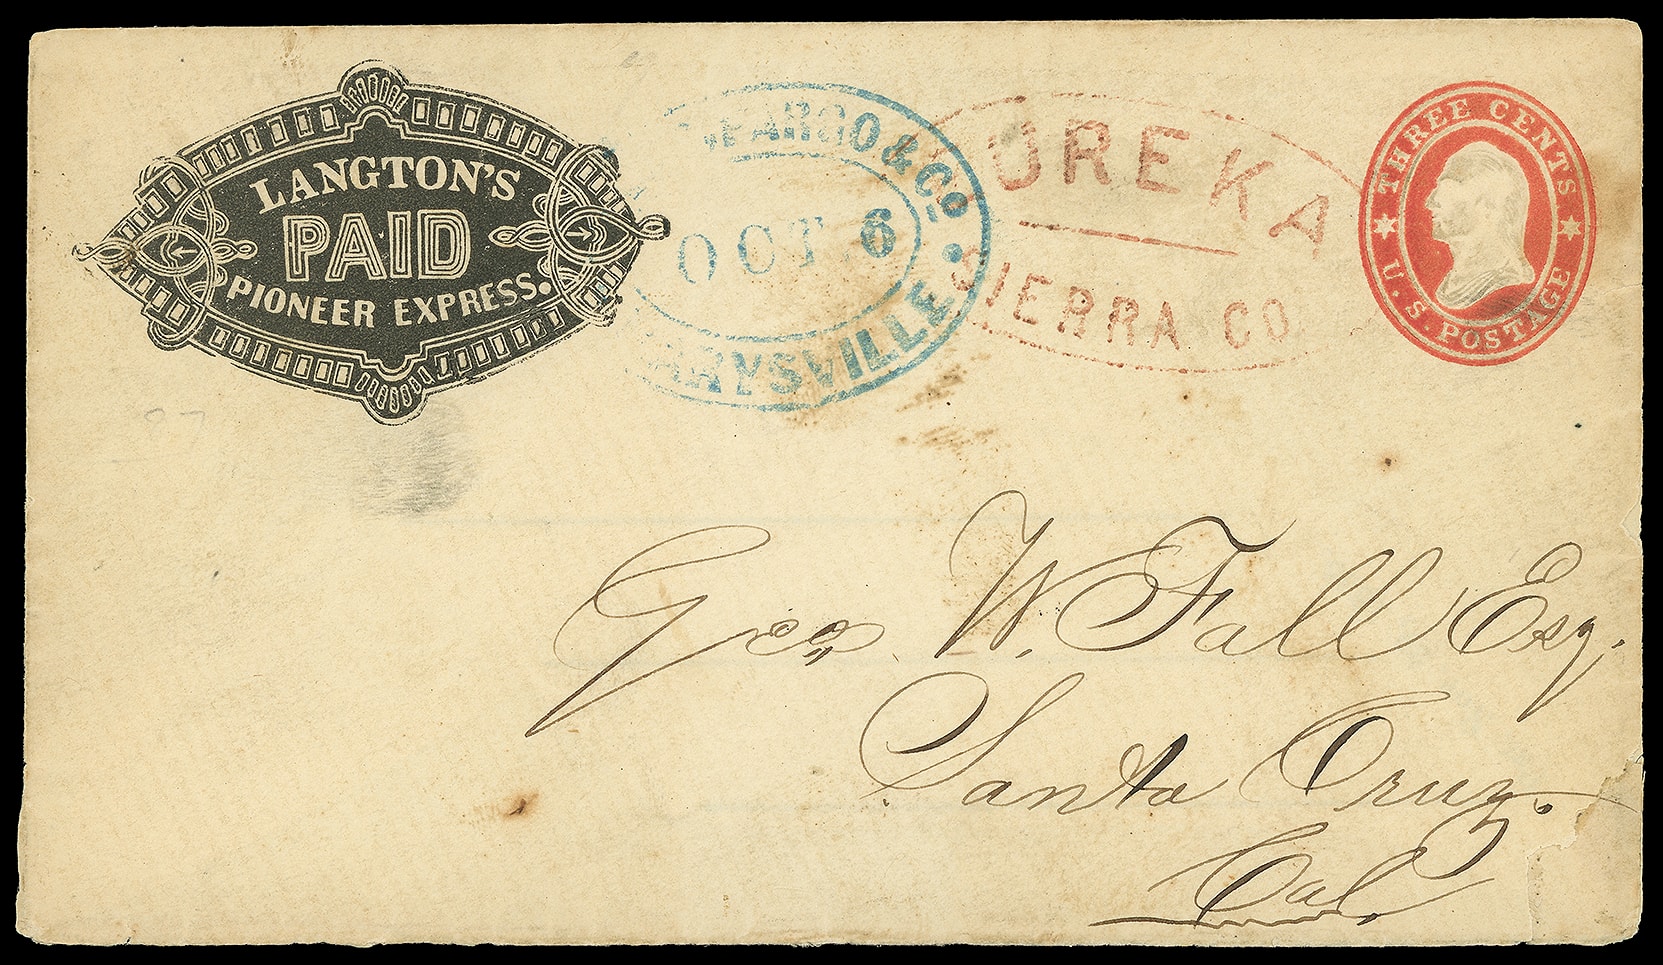 LANGTON'S
PAID
PIONEER EXPRESS.
FARGO & Co
OCT 6
ARYSVILLE
UREKA
SIERRA CO
THREE CENTS
U.S. POSTAGE
Geo. W. Fall Esq.
Santa Cruz.
Cal.